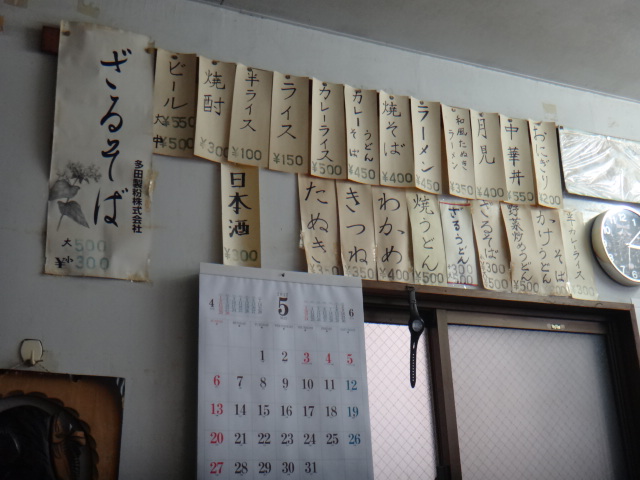 ざるそば
多田製粉株式会社
大 500
小 300
¥
ビール
大 ¥550
中 ¥500
焼酎
¥300
半ライス
¥100
ライス
¥150
カレーライス
¥500
カレーうどんそば
¥450
焼そば
¥400
ラーメン
¥450
和風たぬきラーメン
¥350
月見
¥400
中華丼
¥550
おにぎり
¥200
日本酒
¥300
たぬき
きつね
¥350
わかめ
¥400
焼うどん
¥500
ざるうどん
ざるそば
野菜炒めうどん
かけうどん
そば
4 5 6
1 2 3 4 5
6 7 8 9 10 11 12
13 14 15 16 17 18 19
20 21 22 23 24 25 26
27 28 29 30 31